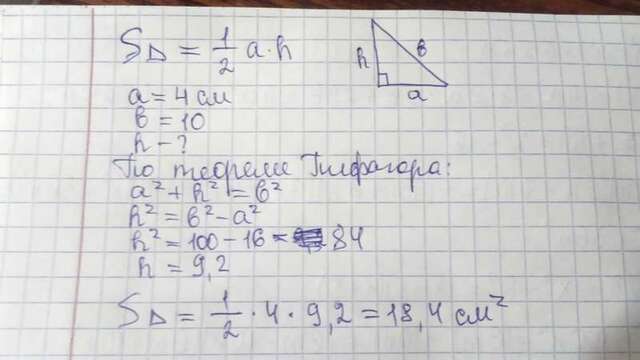 S△ = 1/2 a·h
h
в
a
a = 4 см
в = 10
h - ?
По теореме Пифагора:
a² + h² = в²
h² = в² - a²
h² = 100 - 16 = 84
h = 9,2
S△ = 1/2 · 4 · 9,2 = 18,4 см²